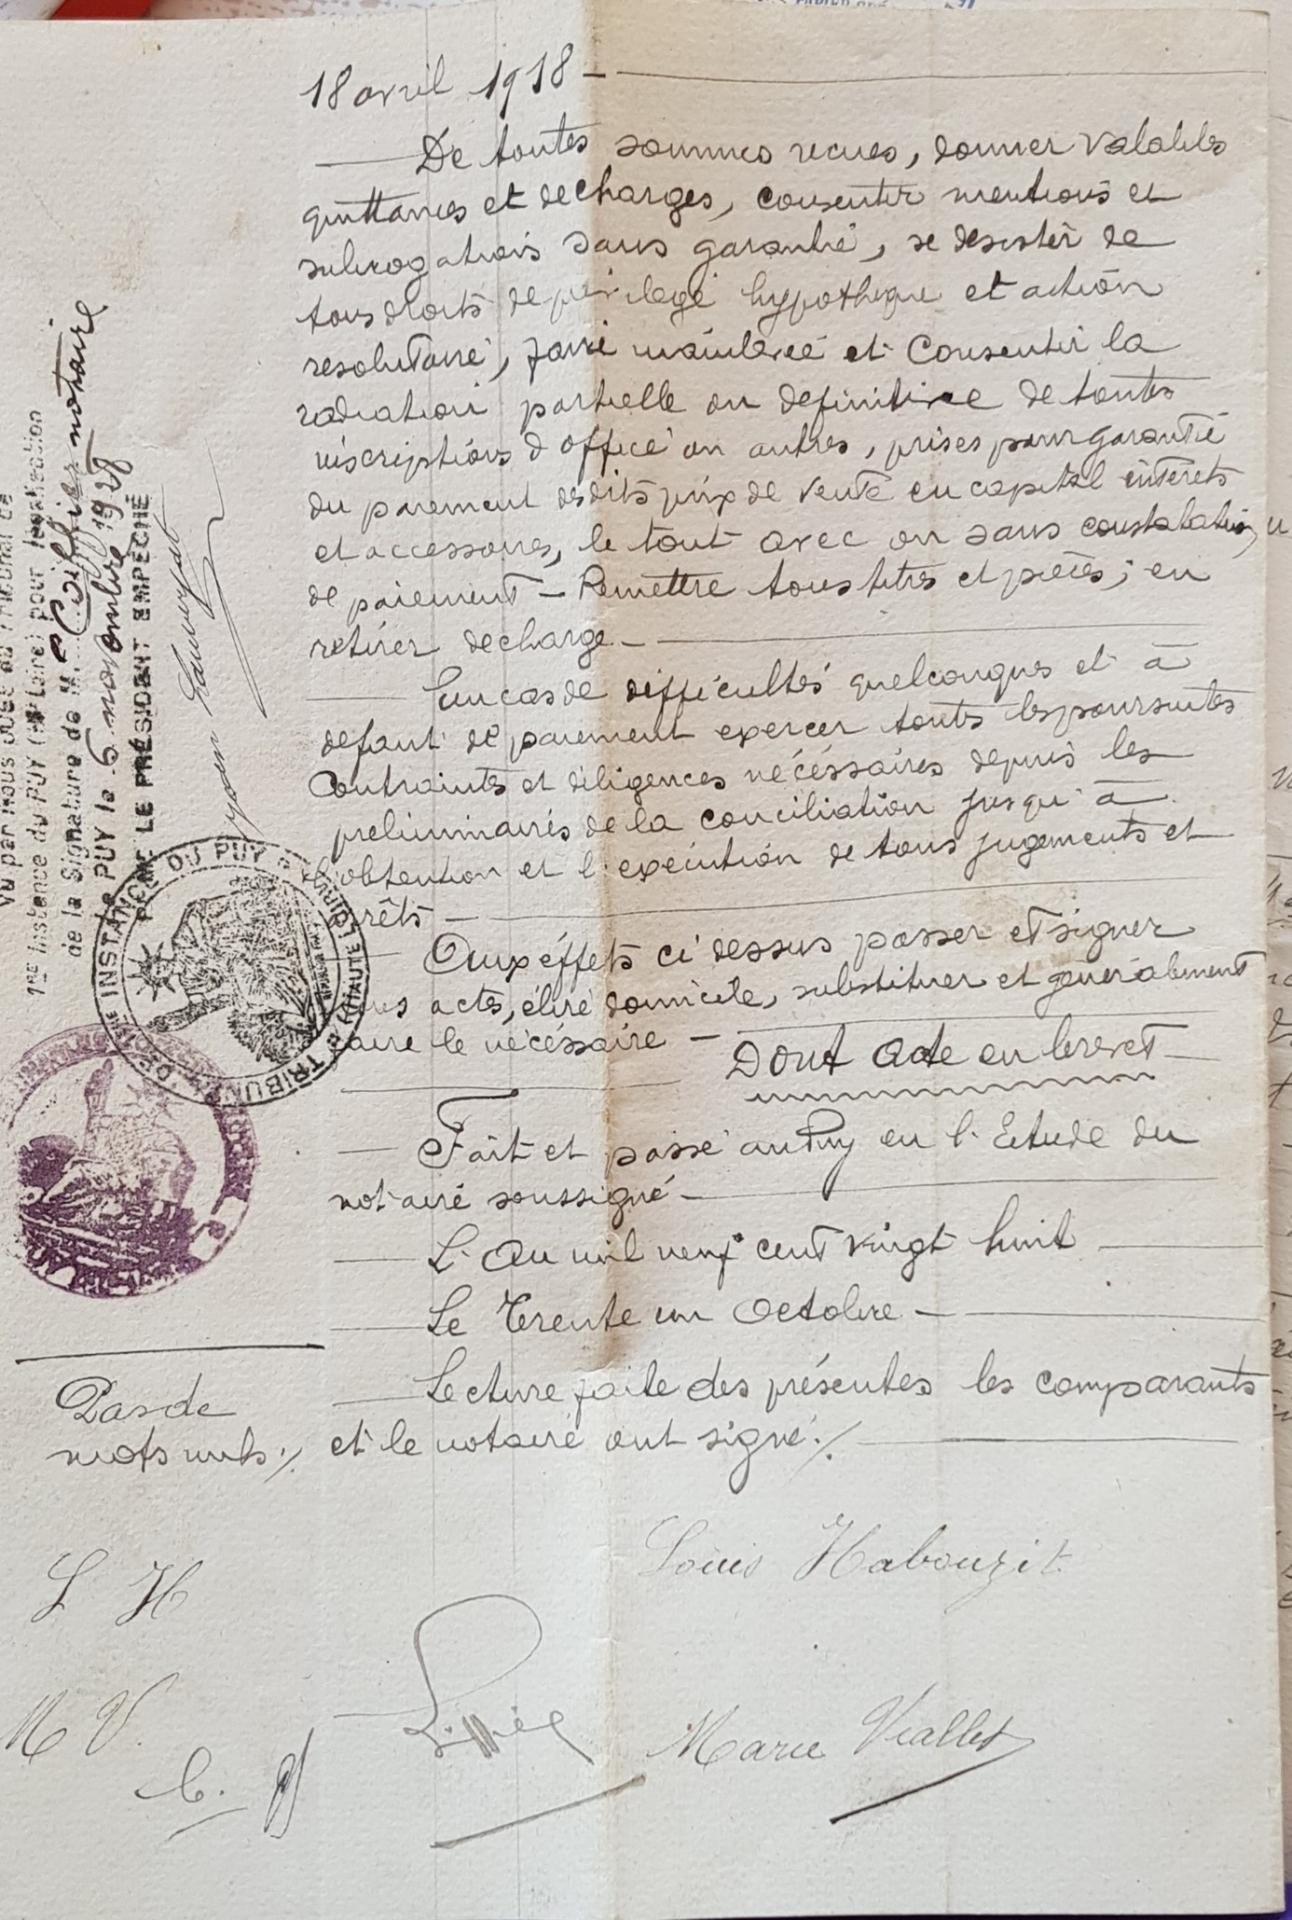 18 avril 1918 —
De toutes sommes recues, donner valables
quittances et decharges, consentir mentions et
subrogations sans garantie, se desister de
tous droits de privilege hypotheque et action
resolutoire, faire mainlevée et Consentir la
radiation partielle ou definitive de toutes
inscriptions d'office ou autres, prises pour garantie
du paiement desdits prix de vente en capital intérêts
et accessoires, le tout avec ou sans constatation
de paiement — Remettre tous titres et pièces; en
retirer decharge —
En cas de difficultés quelconques et à
defaut de paiement exercer toutes les poursuites
Contraintes et diligences nécéssaires depuis les
preliminaires de la conciliation jusqu'à
l'obtention et l'exécution de tous jugements et
arrêts —
Aux éffets ci dessus passer et signer
tous actes, élire domicile, substituer et généralement
faire le nécéssaire —
Dont Acte en brevet —
Fait et passé au Puy en l'Etude du
notaire soussigné —
L'An mil neuf cent vingt huit
Le Trente un Octobre —
Lecture faite des présentes les comparants
et le notaire ont signé ./.
Pas de
mots nuls ./.
Louis Habouzit
L H
Marie Viallet
M V.
Vu par nous Juge au Tribunal de
1re Instance du PUY (Hte Loire) pour légalisation
de la Signature de M. notaire
Le PUY le 6 novembre 1928
POUR LE PRÉSIDENT EMPÉCHÉ
TRIBUNAL DE 1ère INSTANCE DU PUY (HAUTE LOIRE)